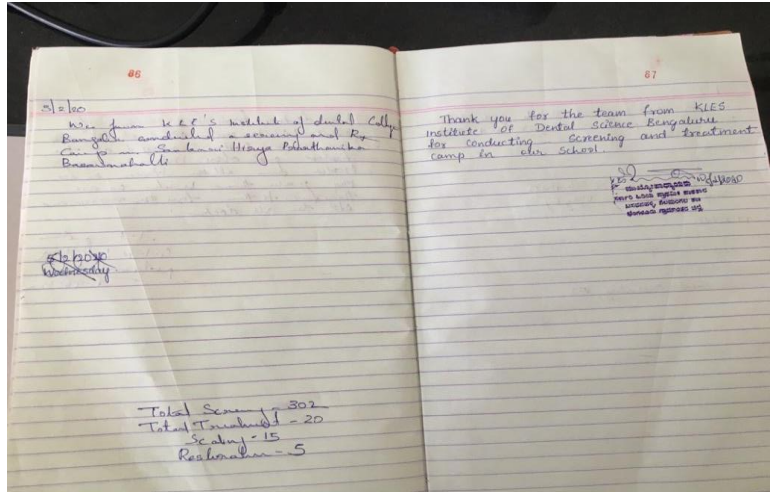 86
5/2/20
We from KLE's institute of dental College
Bangalore conducted a screening and Rx
Camp in Sarkari Hiriya Prathamika
Basavanahalli
5/2/2020
Wednesday
Total Screening - 302
Total Treatment - 20
Scaling - 15
Restoration - 5
67
Thank you for the team from KLES
Institute of Dental Science Bengaluru
for conducting screening and treatment
camp in our school.
5/2/2020
ಮುಖ್ಯೋಪಾಧ್ಯಾಯರು
ಸರ್ಕಾರಿ ಹಿರಿಯ ಪ್ರಾಥಮಿಕ ಶಾಲೆ